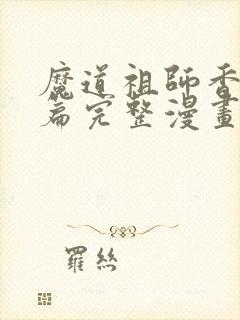 魔道祖師香
篇完整漫畫
羅絲